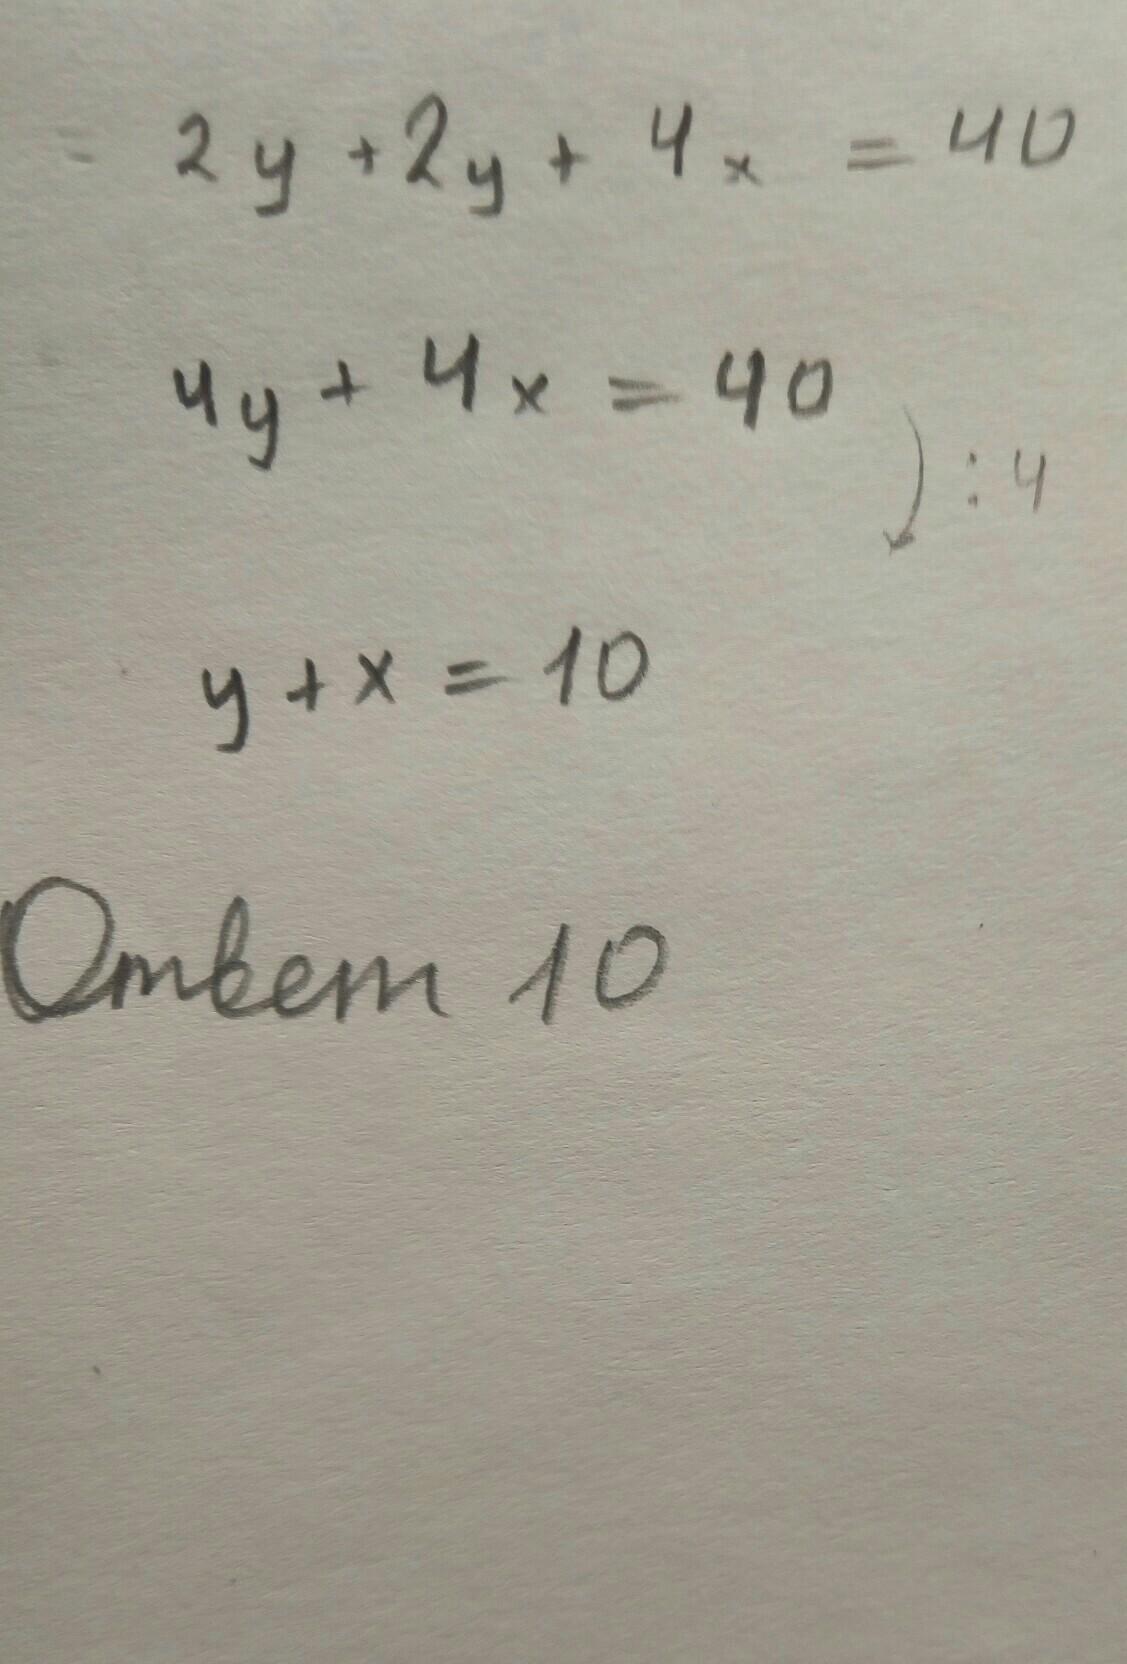 = 2y + 2y + 4x = 40
4y + 4x = 40
:4
y + x = 10
Ответ 10